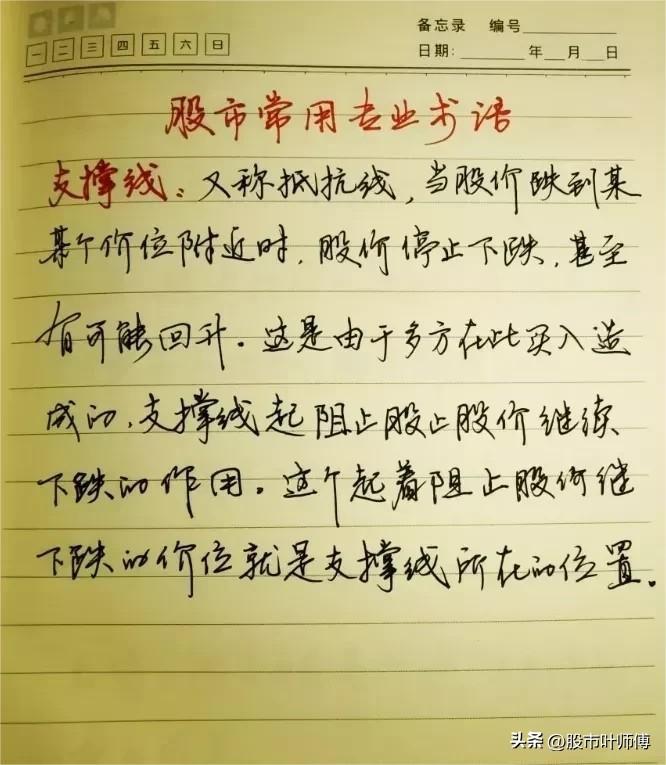 备忘录 编号
一 二 三 四 五 六 日
日期: 年 月 日
股市常用专业术语
支撑线：又称抵抗线，当股价跌到某
某个价位附近时，股价停止下跌，甚至
有可能回升。这是由于多方在此买入造
成的，支撑线起阻止股止股价继续
下跌的作用。这个起着阻止股价继
下跌的价位就是支撑线所在的位置。
头条 @股市叶师傅